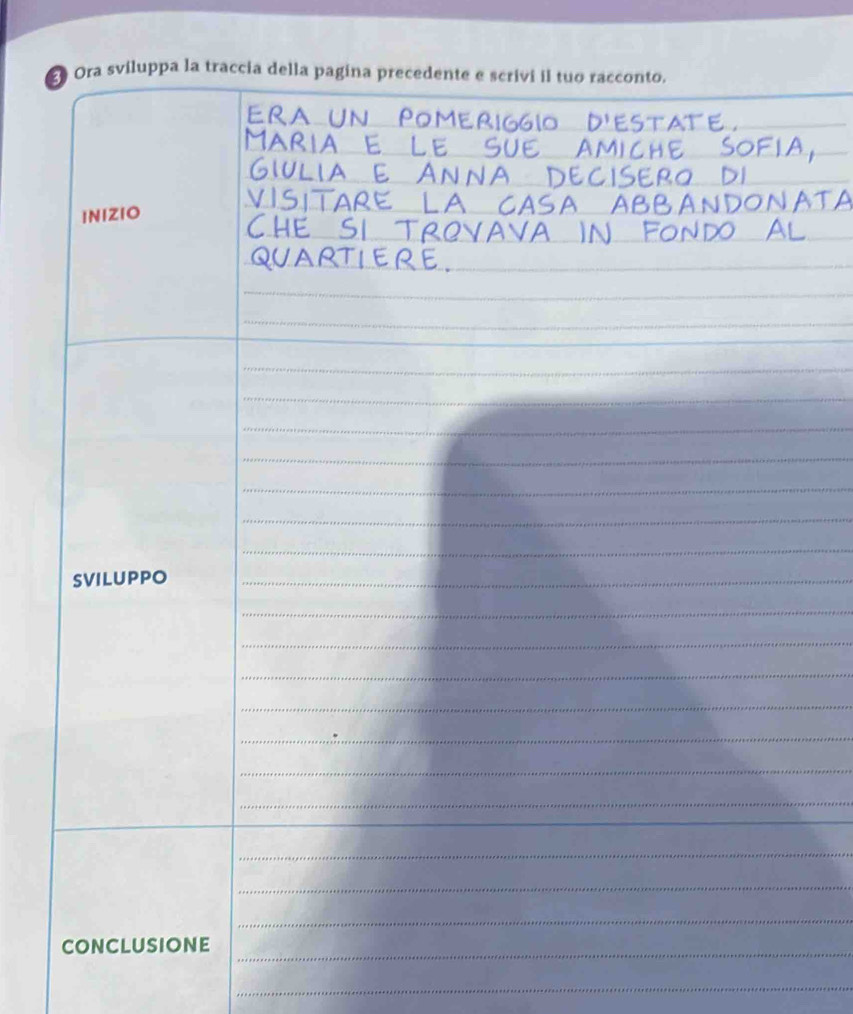 3 Ora sviluppa la traccia della pagina precedente e scrivi il tuo racconto.
ERA UN POMERIGGIO D'ESTATE.
MARIA E LE SUE AMICHE SOFIA,
GIULIA E ANNA DECISERO DI
VISITARE LA CASA ABBANDONATA
CHE SI TROVAVA IN FONDO AL
QUARTIERE.
INIZIO
SVILUPPO
CONCLUSIONE